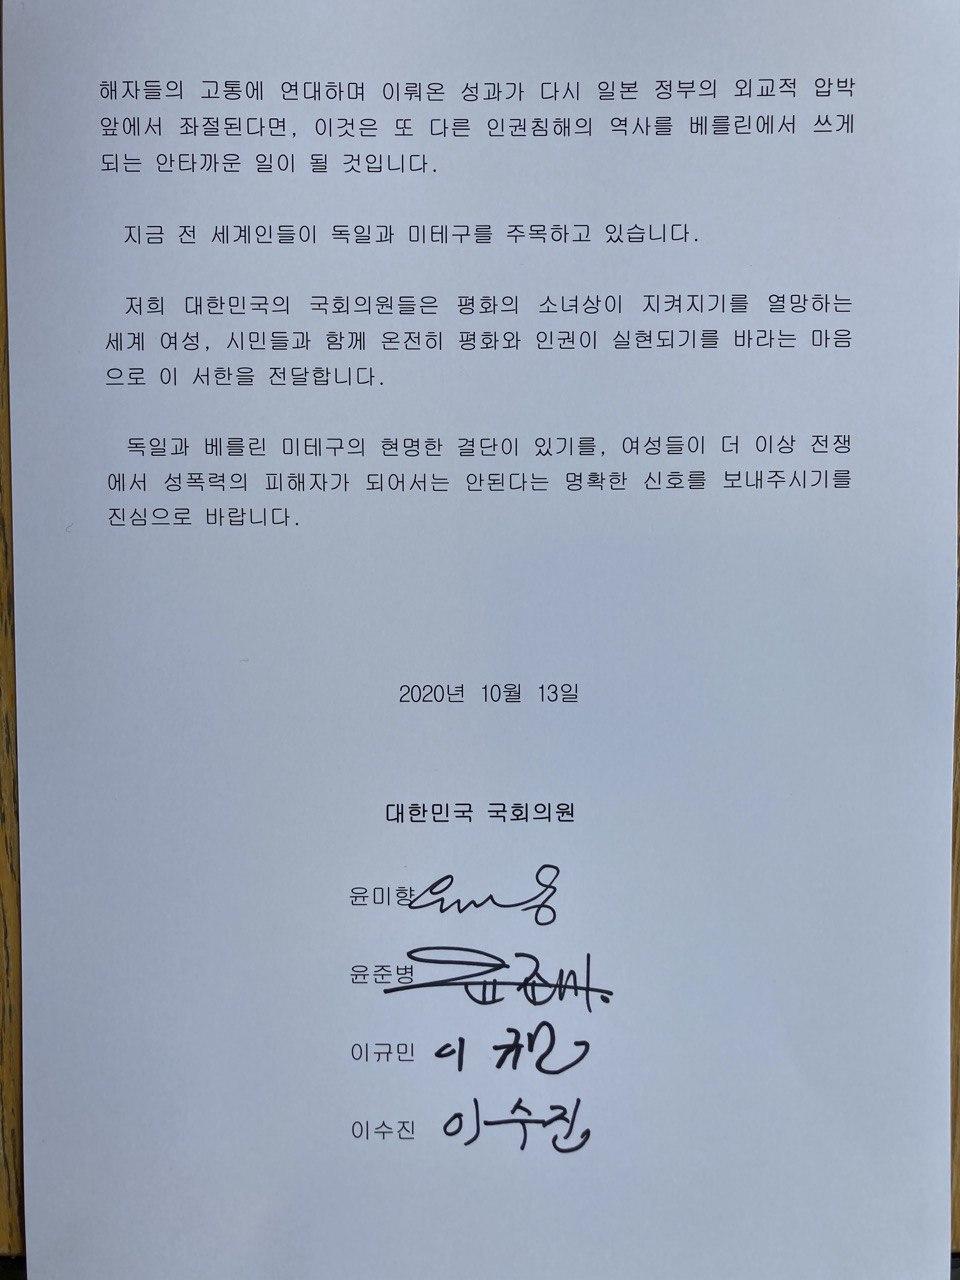 해자들의 고통에 연대하며 이뤄온 성과가 다시 일본 정부의 외교적 압박
앞에서 좌절된다면, 이것은 또 다른 인권침해의 역사를 베를린에서 쓰게
되는 안타까운 일이 될 것입니다.
지금 전 세계인들이 독일과 미테구를 주목하고 있습니다.
저희 대한민국의 국회의원들은 평화의 소녀상이 지켜지기를 열망하는
세계 여성, 시민들과 함께 온전히 평화와 인권이 실현되기를 바라는 마음
으로 이 서한을 전달합니다.
독일과 베를린 미테구의 현명한 결단이 있기를, 여성들이 더 이상 전쟁
에서 성폭력의 피해자가 되어서는 안된다는 명확한 신호를 보내주시기를
진심으로 바랍니다.
2020년 10월 13일
대한민국 국회의원
윤미향
윤준병
이규민 이규민
이수진 이수진